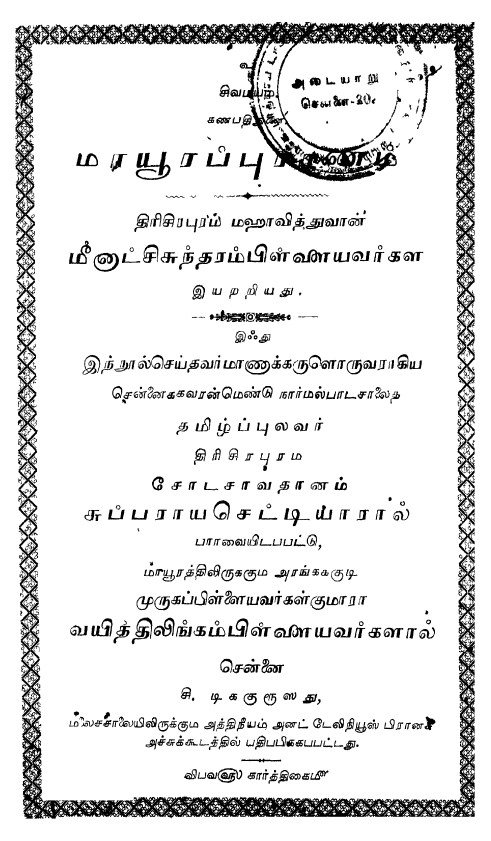 அடையாறு
சென்னை-20.
சிவமயம்.
கணபதிதுணை
மாயூரப்புராணம்
திரிசிரபுரம் மஹாவித்துவான்
மீனாட்சிசுந்தரம்பிள்ளையவர்கள
இயறறியது.
இஃது
இந்நூல்செய்தவர்மாணாக்கருளொருவராகிய
சென்னைககவரன்மெண்டு நார்மல்பாடசாலைத
தமிழ்ப்புலவர்
திரிசிரபுரம
சோடசாவதானம்
சுப்பராயசெட்டியாரால்
பாரவையிடபபட்டு,
மாயூரத்திலிருககும அரங்கககுடி
முருகப்பிள்ளையவர்கள்குமாரா
வயித்திலிங்கம்பிள்ளையவர்களால்
சென்னை
சி. டிககுரூஸது,
மிலசசாலையிலிருக்கும அத்திநீயம் அனட் டேலிநியூஸ் பிரானச்
அச்சுக்கூடத்தில் பதிபபிக்கபபட்டது.
விபவ௵ கார்த்திகை௴